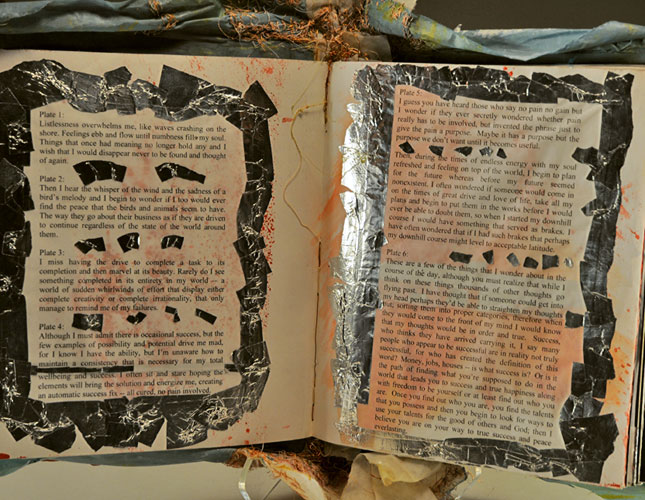 Plate 1:
Listlessness overwhelms me, like waves crashing on the
shore. Feelings ebb and flow until numbness fills my soul.
Things that once had meaning no longer hold any and I
wish that I would disappear never to be found and thought
of again.
Plate 2:
Then I hear the whisper of the wind and the sadness of a
bird's melody and I begin to wonder if I too would ever
find the peace that the birds and animals seem to have.
The way they go about their business as if they are driven
to continue regardless of the state of the world around
them.
Plate 3:
I miss having the drive to complete a task to its
completion and then marvel at its beauty. Rarely do I see
something completed in its entirety in my world -- a
world of sudden whirlwinds of effort that display either
complete creativity or complete irrationality, that only
manage to remind me of my failures.
Plate 4:
Although I must admit there is occasional success, but the
few examples of possibility and potential drive me mad,
for I know I have the ability, but I'm unaware how to
maintain a consistency that is necessary for my total
wellbeing and success. I often sit and stare hoping the
elements will bring the solution and energize me, creating
an automatic success fix -- all cured, no pain involved.
Plate 5:
I guess you have heard those who say no pain no gain but
I wonder if they ever secretly wondered whether pain
really has to be involved, but invented the phrase just to
give the pain a purpose. Maybe it has a purpose but the
purpose we don't want until it becomes useful.
Then, during the times of endless energy with my soul
refreshed and feeling on top of the world, I begin to plan
for the future whereas before my future seemed
nonexistent. I often wondered if someone would come in
on the times of great drive and love of life, take all my
plans and begin to put them in the works before I would
ever be able to doubt them, so when I started my downhill
course I would have something that served as brakes. I
have often wondered that if I had such brakes that perhaps
my downhill course might level to acceptable latitude.
Plate 6
These are a few of the things that I wonder about in the
course of the day, although you must realize that while I
think on these things thousands of other thoughts go
flying past. I have thought that if someone could get into
my head perhaps they'd be able to straighten my thoughts
out, sorting them into proper categories, therefore when
they would come to the front of my mind I would know
that my thoughts would be in order and true. Success,
who thinks they have arrived carrying it, I say many
people who appear to be successful are in reality not truly
successful, for who has created the definition of this
word? Money, jobs, houses -- is what success is? Or is it
the path of finding what you're supposed to do in the
world that leads you to success and true happiness along
with freedom to be yourself or at least find out who you
are. Once you find out who you are, you find the talents
that you possess and then you begin to look for ways to
use your talents for the good of others and God; then I
believe you are on your way to true success and peace
everlasting.